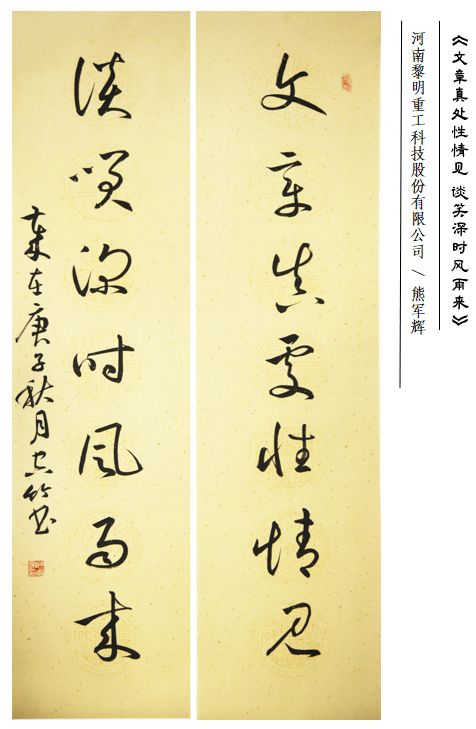 《文章真处性情见 谈笑深时风雨来》
河南黎明重工科技股份有限公司 / 熊军辉
文章真處性情见
谈咲深时风雨来
岁在庚子秋月竹书